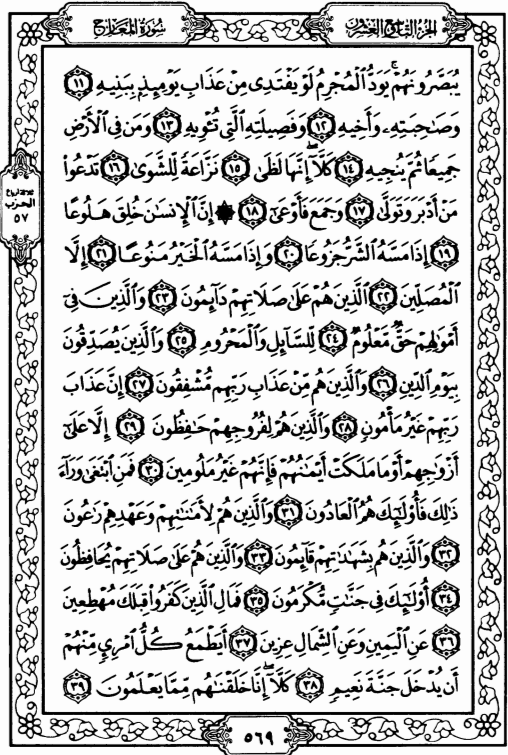 سُورَةُ الْمَعَارِجِ
الجُزْءُ التَّاسِعُ وَالعِشْرُونَ
يُبَصَّرُونَهُمْ ۚ يَوَدُّ الْمُجْرِمُ لَوْ يَفْتَدِى مِنْ عَذَابِ يَوْمِئِذٍۭ بِبَنِيهِ ١١
وَصَٰحِبَتِهِۦ وَأَخِيهِ ١٢ وَفَصِيلَتِهِ الَّتِى تُـْٔوِيهِ ١٣ وَمَن فِى الْأَرْضِ
جَمِيعًا ثُمَّ يُنجِيهِ ١٤ كَلَّآ ۖ إِنَّهَا لَظَىٰ ١٥ نَزَّاعَةً لِّلشَّوَىٰ ١٦ تَدْعُوا۟
مَنْ أَدْبَرَ وَتَوَلَّىٰ ١٧ وَجَمَعَ فَأَوْعَىٰٓ ١٨ ۞ إِنَّ الْإِنسَٰنَ خُلِقَ هَلُوعًا
١٩ إِذَا مَسَّهُ الشَّرُّ جَزُوعًا ٢٠ وَإِذَا مَسَّهُ الْخَيْرُ مَنُوعًا ٢١ إِلَّا
الْمُصَلِّينَ ٢٢ الَّذِينَ هُمْ عَلَىٰ صَلَاتِهِمْ دَآئِمُونَ ٢٣ وَالَّذِينَ فِىٓ
أَمْوَٰلِهِمْ حَقٌّ مَّعْلُومٌ ٢٤ لِّلسَّآئِلِ وَالْمَحْرُومِ ٢٥ وَالَّذِينَ يُصَدِّقُونَ
بِيَوْمِ الدِّينِ ٢٦ وَالَّذِينَ هُم مِّنْ عَذَابِ رَبِّهِم مُّشْفِقُونَ ٢٧ إِنَّ عَذَابَ
رَبِّهِمْ غَيْرُ مَأْمُونٍ ٢٨ وَالَّذِينَ هُمْ لِفُرُوجِهِمْ حَٰفِظُونَ ٢٩ إِلَّا عَلَىٰٓ
أَزْوَٰجِهِمْ أَوْ مَا مَلَكَتْ أَيْمَٰنُهُمْ فَإِنَّهُمْ غَيْرُ مَلُومِينَ ٣٠ فَمَنِ ابْتَغَىٰ وَرَآءَ
ذَٰلِكَ فَأُو۟لَٰٓئِكَ هُمُ الْعَادُونَ ٣١ وَالَّذِينَ هُمْ لِأَمَٰنَٰتِهِمْ وَعَهْدِهِمْ رَٰعُونَ
٣٢ وَالَّذِينَ هُم بِشَهَٰدَٰتِهِمْ قَآئِمُونَ ٣٣ وَالَّذِينَ هُمْ عَلَىٰ صَلَاتِهِمْ يُحَافِظُونَ
٣٤ أُو۟لَٰٓئِكَ فِى جَنَّٰتٍ مُّكْرَمُونَ ٣٥ فَمَالِ الَّذِينَ كَفَرُوا۟ قِبَلَكَ مُهْطِعِينَ
٣٦ عَنِ الْيَمِينِ وَعَنِ الشِّمَالِ عِزِينَ ٣٧ أَيَطْمَعُ كُلُّ امْرِئٍ مِّنْهُمْ
أَن يُدْخَلَ جَنَّةَ نَعِيمٍ ٣٨ كَلَّآ ۖ إِنَّا خَلَقْنَٰهُم مِّمَّا يَعْلَمُونَ ٣٩
الحزب
٥٧
٥٦٩